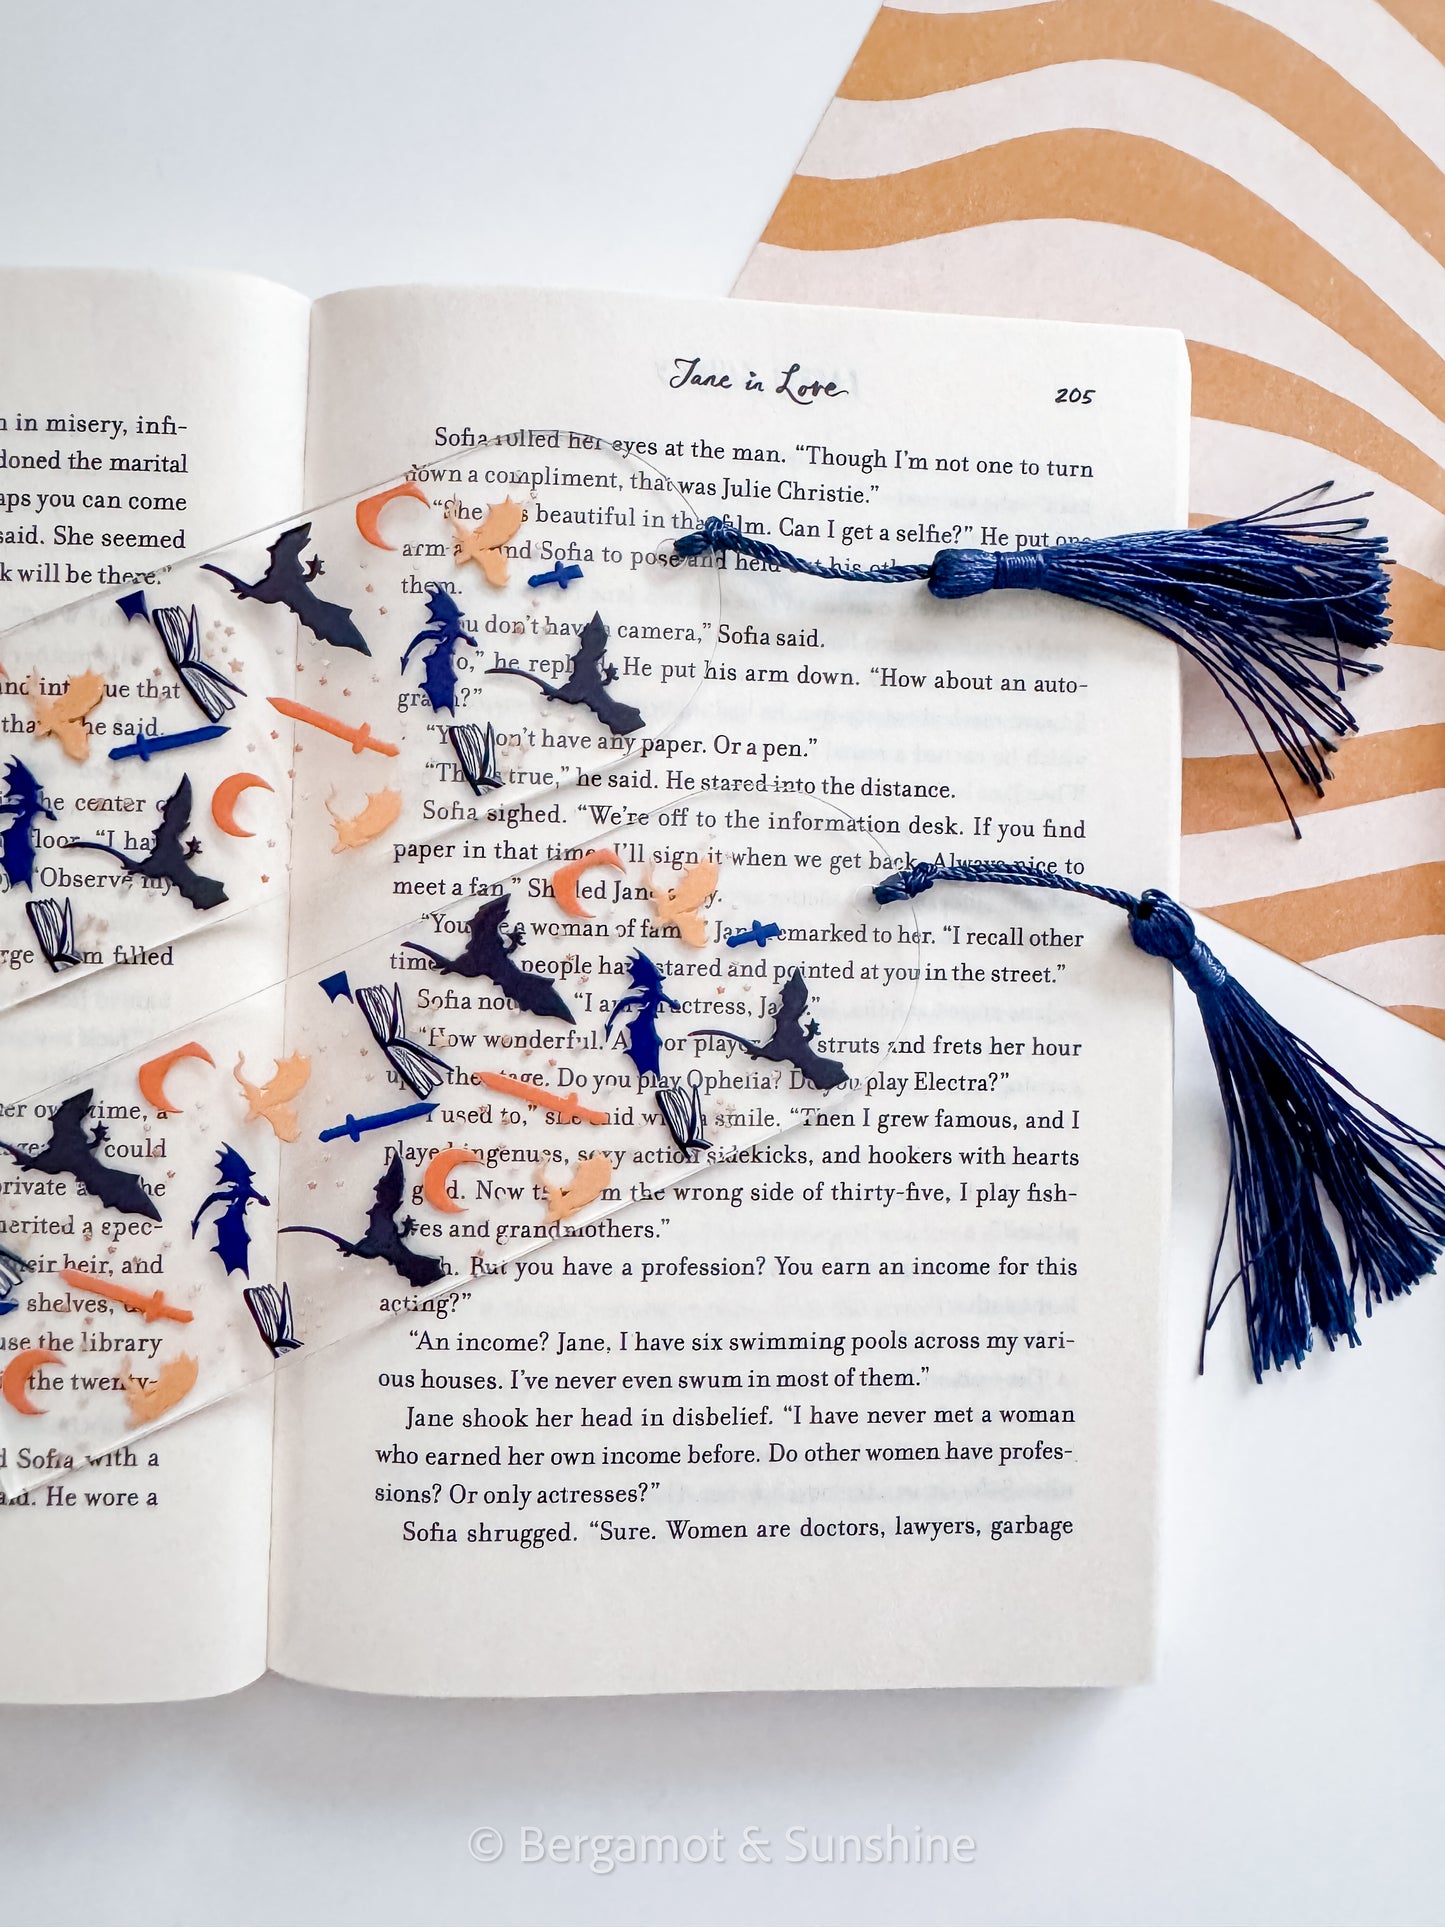 in misery, infi-
doned the marital
you can come
said. She seemed
will be there."
that
he said.
he center
floor. "I
"Observe my
filled
time, a
could
private
a spec-
heir, and
shelves,
use the library
the twenty-
Sofia with a
He wore a
Jane in Love
205
Sofia rolled her eyes at the man. "Though I'm not one to turn
down a compliment, that was Julie Christie."
"She beautiful in that film. Can I get a selfie?" He put one
arm Sofia to pose and held his
them.
don't have camera," Sofia said.
he He put his arm down. "How about an auto-
don't have any paper. Or a pen."
true," he said. He stared into the distance.
Sofia sighed. "We're off to the information desk. If you find
paper in that time, I'll sign it when we get back. Always nice to
meet a fan."
a woman of remarked to her. "I recall other
people stared and pointed at you in the street."
Sofia "I actress,
"How wonderful. A struts and frets her hour
the Do you play Ophelia? play Electra?"
used to," smile. "Then I grew famous, and I
ingenues, sexy action sidekicks, and hookers with hearts
the wrong side of thirty-five, I play fish-
and grandmothers."
But you have a profession? You earn an income for this
acting?"
"An income? Jane, I have six swimming pools across my vari-
ous houses. I've never even swum in most of them."
Jane shook her head in disbelief. "I have never met a woman
who earned her own income before. Do other women have profes-
sions? Or only actresses?"
Sofia shrugged. "Sure. Women are doctors, lawyers, garbage
© Bergamot & Sunshine